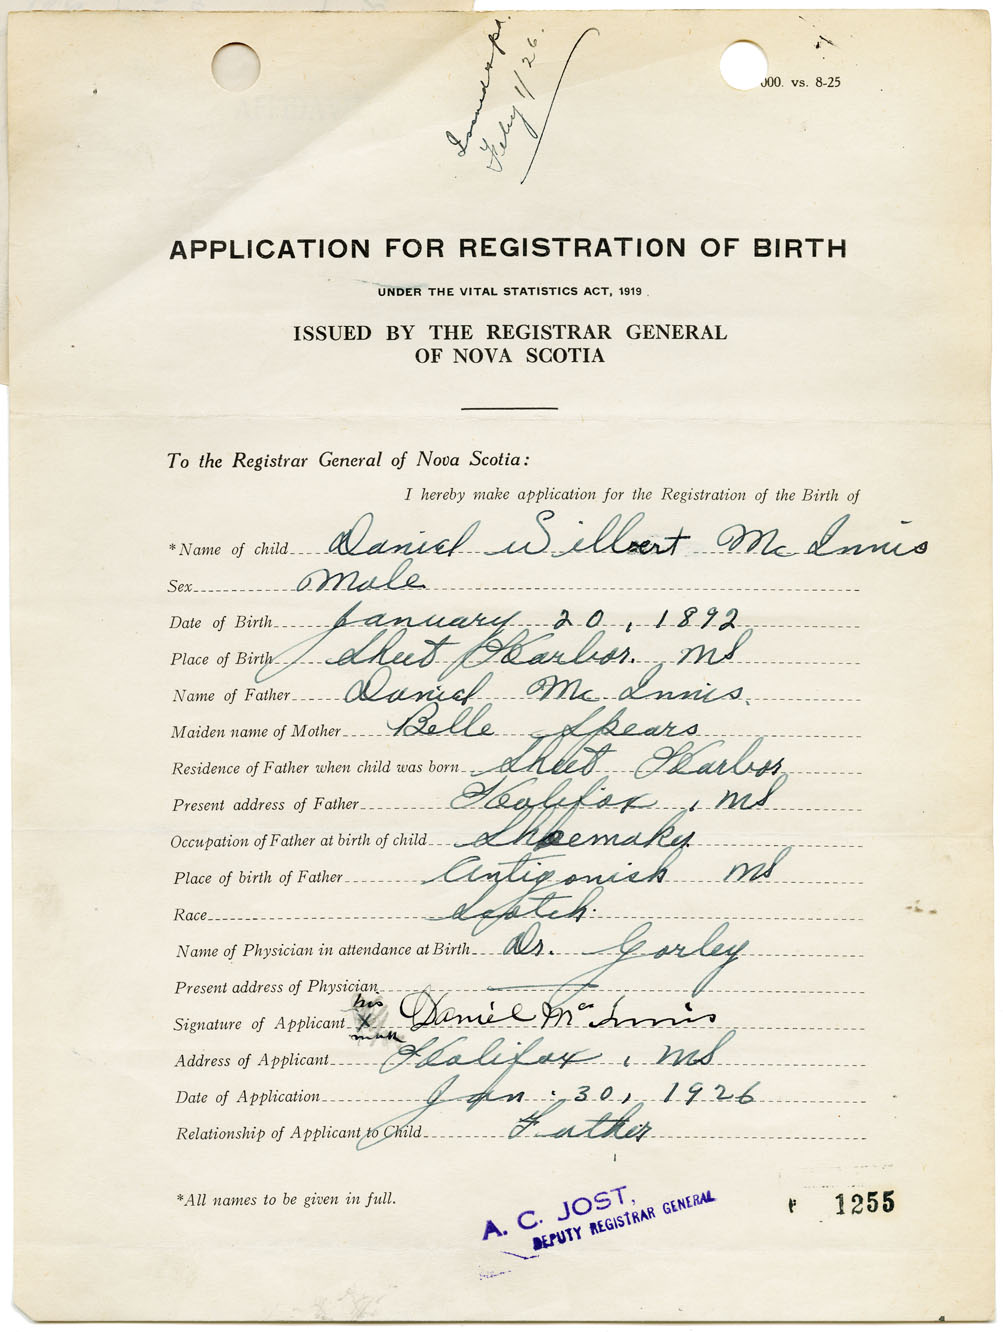 Issued & pd.
Feby 1/26.
000. vs. 8-25
APPLICATION FOR REGISTRATION OF BIRTH
UNDER THE VITAL STATISTICS ACT, 1919.
ISSUED BY THE REGISTRAR GENERAL
OF NOVA SCOTIA
To the Registrar General of Nova Scotia:
I hereby make application for the Registration of the Birth of
*Name of child Daniel Wilbert Mc Innis
Sex Male
Date of Birth January 20, 1892
Place of Birth Sheet Harbor. NS
Name of Father Daniel Mc Innis.
Maiden name of Mother Belle Spears
Residence of Father when child was born Sheet Harbor
Present address of Father Halifax, NS
Occupation of Father at birth of child Shoemaker
Place of birth of Father Antigonish NS
Race Scotch.
Name of Physician in attendance at Birth Dr. Gorley
Present address of Physician
his
Signature of Applicant X Daniel Mc Innis
mark
Address of Applicant Halifax, NS
Date of Application Jan. 30, 1926
Relationship of Applicant to Child Father
*All names to be given in full.
A. C. JOST,
DEPUTY REGISTRAR GENERAL
1255